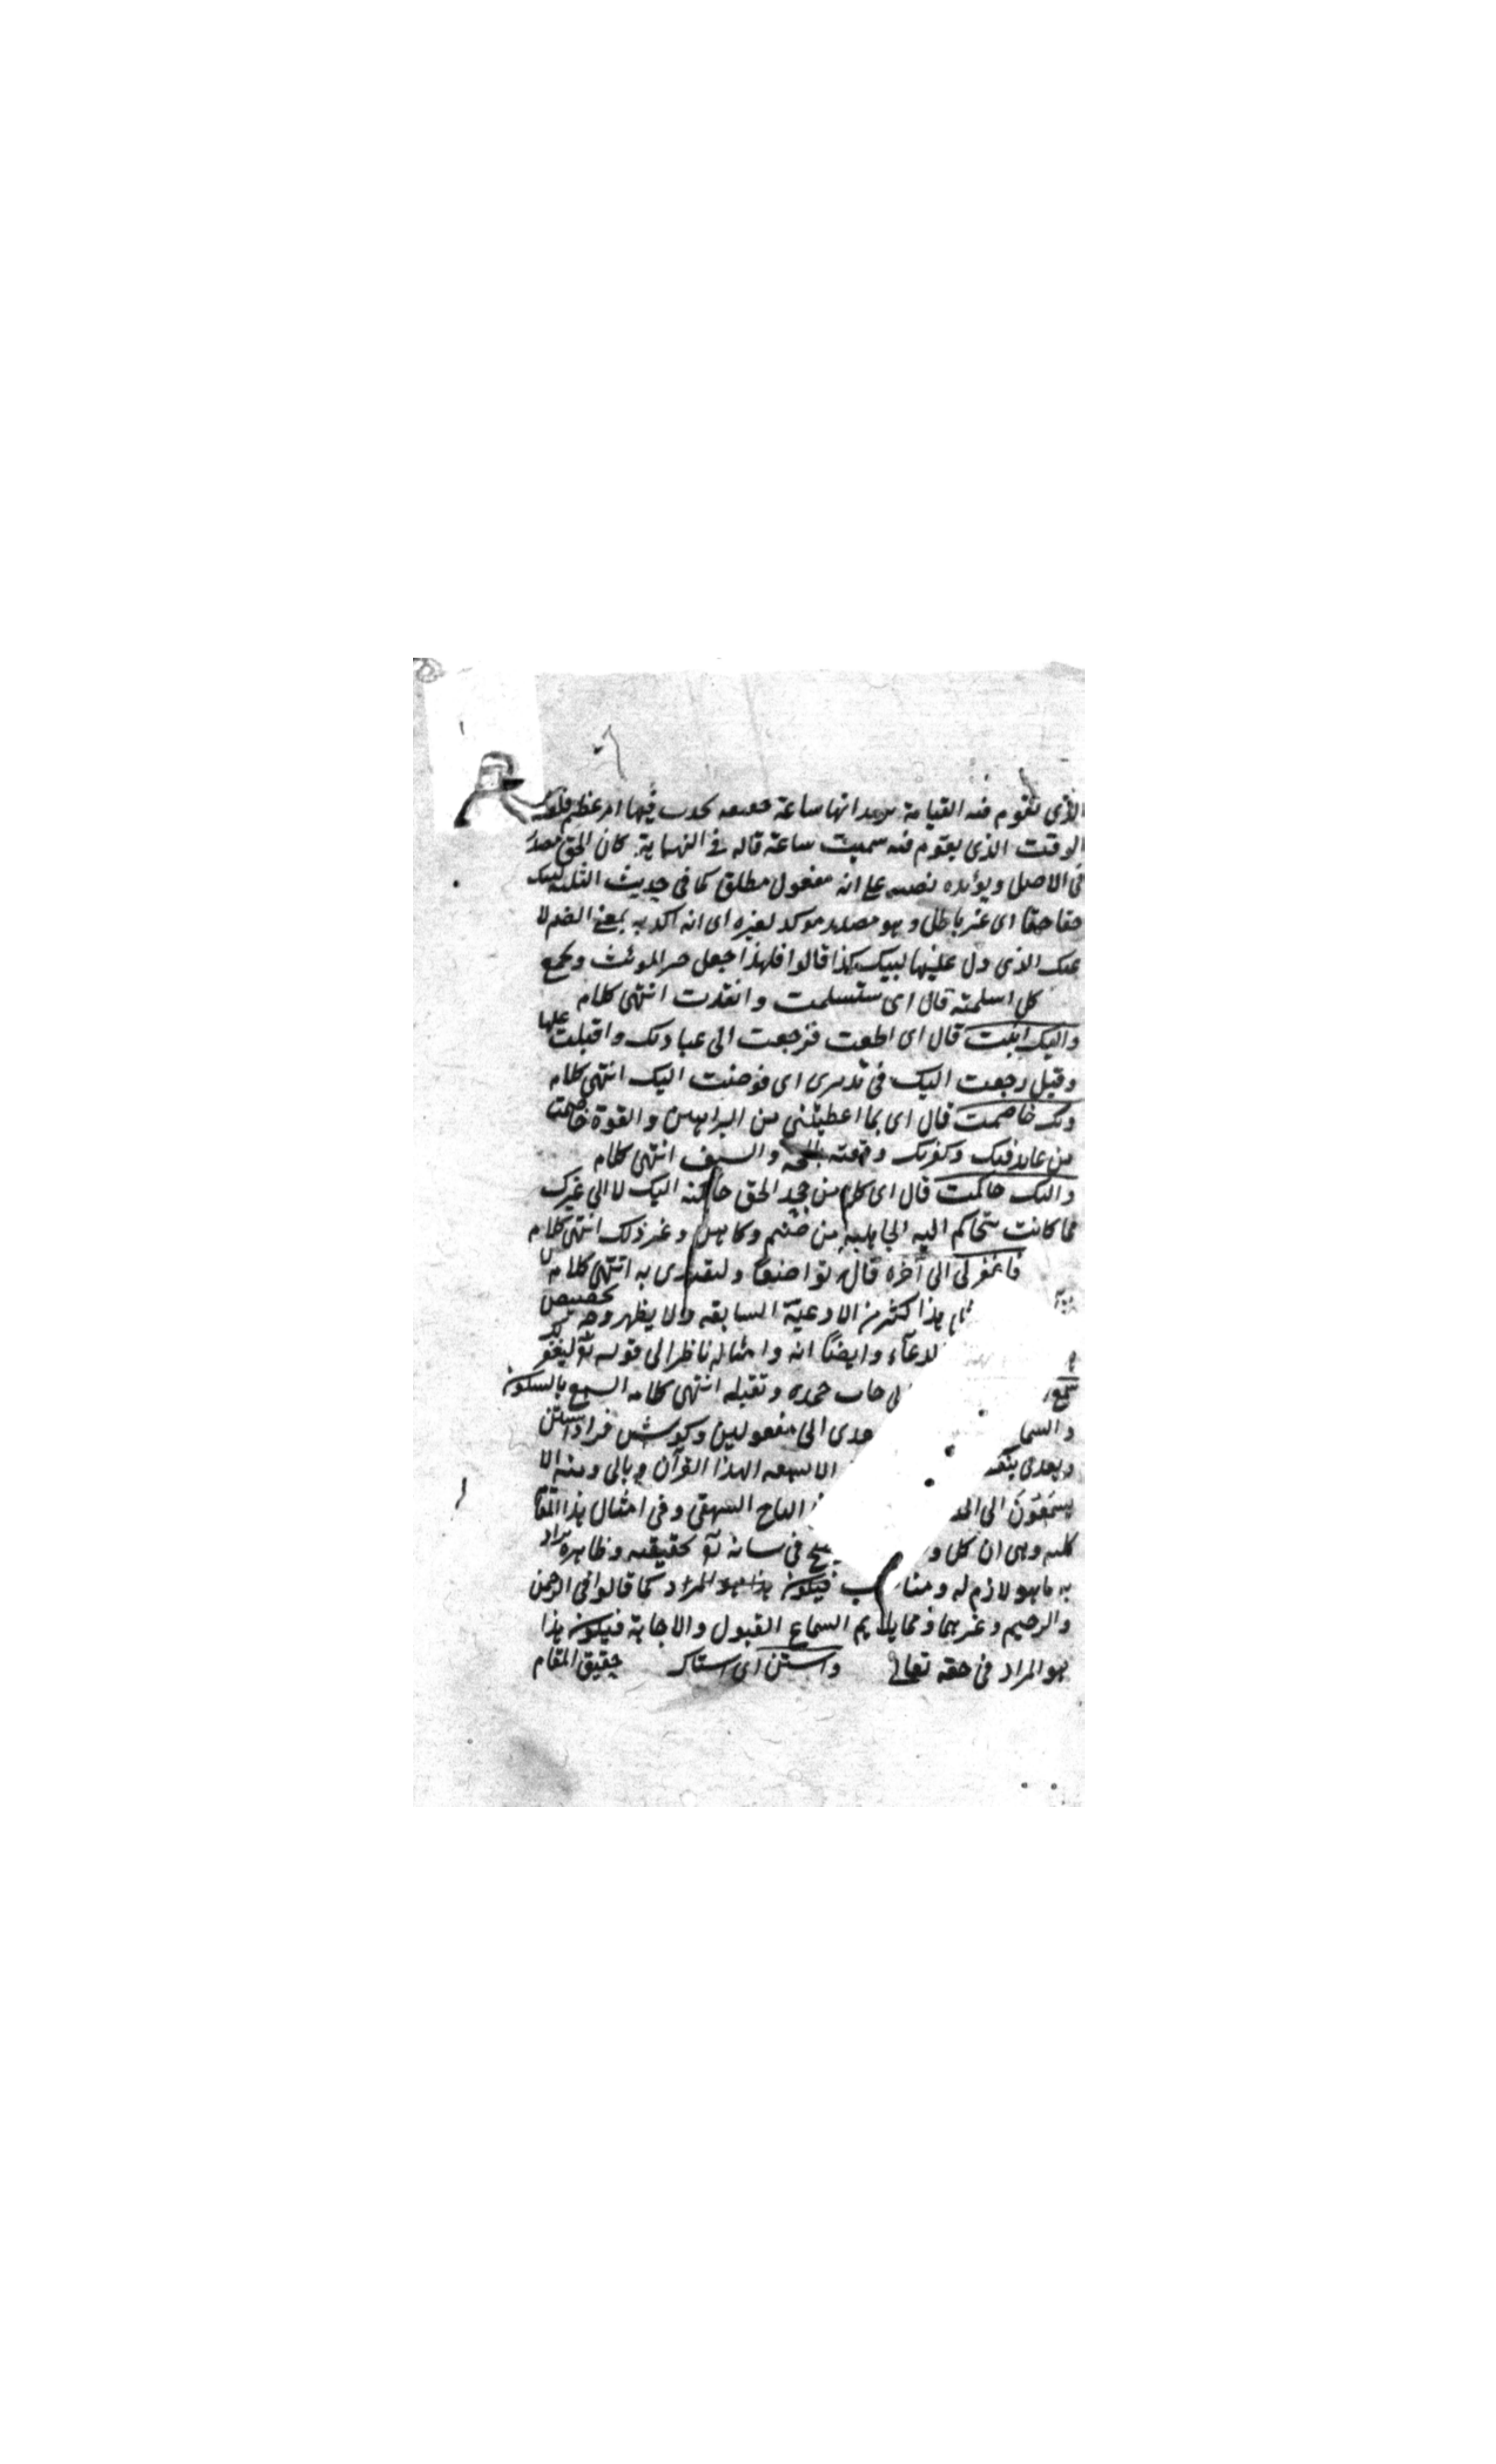 الذى تقوم فيه القيامة يريد انها ساعة خفيفة يحدث فيها امر عظيم فلقلة
الوقت الذى يقوم فيه سميت ساعة قاله فى النهاية كان الحق مصدر
فى الاصل ويؤيده نصبه على انه مفعول مطلق كما فى حديث التلبية لبيك
حقا حقا اى غير باطل وهو مصدر موكد لغيره اى انه اكد به معنى الضم لا
عتك الذى دل عليها لبيك كذا قالوا فلهذا جعل المونث وجمع
كل اسلمته قال اى ستسلمت وانقدت انتهى كلام
واليك انبت قال اى اطعت فرجعت الى عبادتك واقبلت عليها
وقيل رجعت اليك فى تدبيرى اى فوضت اليك انتهى كلام
وبك خاصمت قال اى بما اعطيتنى من البراهين والقوة خاصمت
من عاند فيك وكفر بك وقمعته بالحجة والسيف انتهى كلام
واليك حاكمت قال اى كل من جحد الحق حاكمته اليك لا الى غيرك
مما كانت تتحاكم اليه الجاهلية من صنم وكاهن وغير ذلك انتهى كلام
فاغفر لى الى آخره قال تواضعا وليقتدى به انتهى كلام
هذا كثير من الادعية السابقة ولا يظهر وجه تخصيص
الدعآء وايضا انه وامثاله ناظر الى قوله تع ليغفر لك
سمع حمده وتقبله انتهى كلامه السمع بالسكون
والسما الى مفعولين
ويعدى بنفسه لا تسمعوا لهذا القرآن وبالى ومنه لا
يسمعون الى التاج البيهقى وفى امثال هذا المقام
كليه وهى ان كل و فى شانه تع حقيقته وظاهره يراد
به ما هو لازم له ومناسب فيكون هذا هو المراد كما قالوا فى الرحمن
والرحيم وغيرهما ومما يلايم السماع القبول والاجابة فيكون هذا
هو المراد فى حقه تعالى واستن اى استاك حقيق المقام